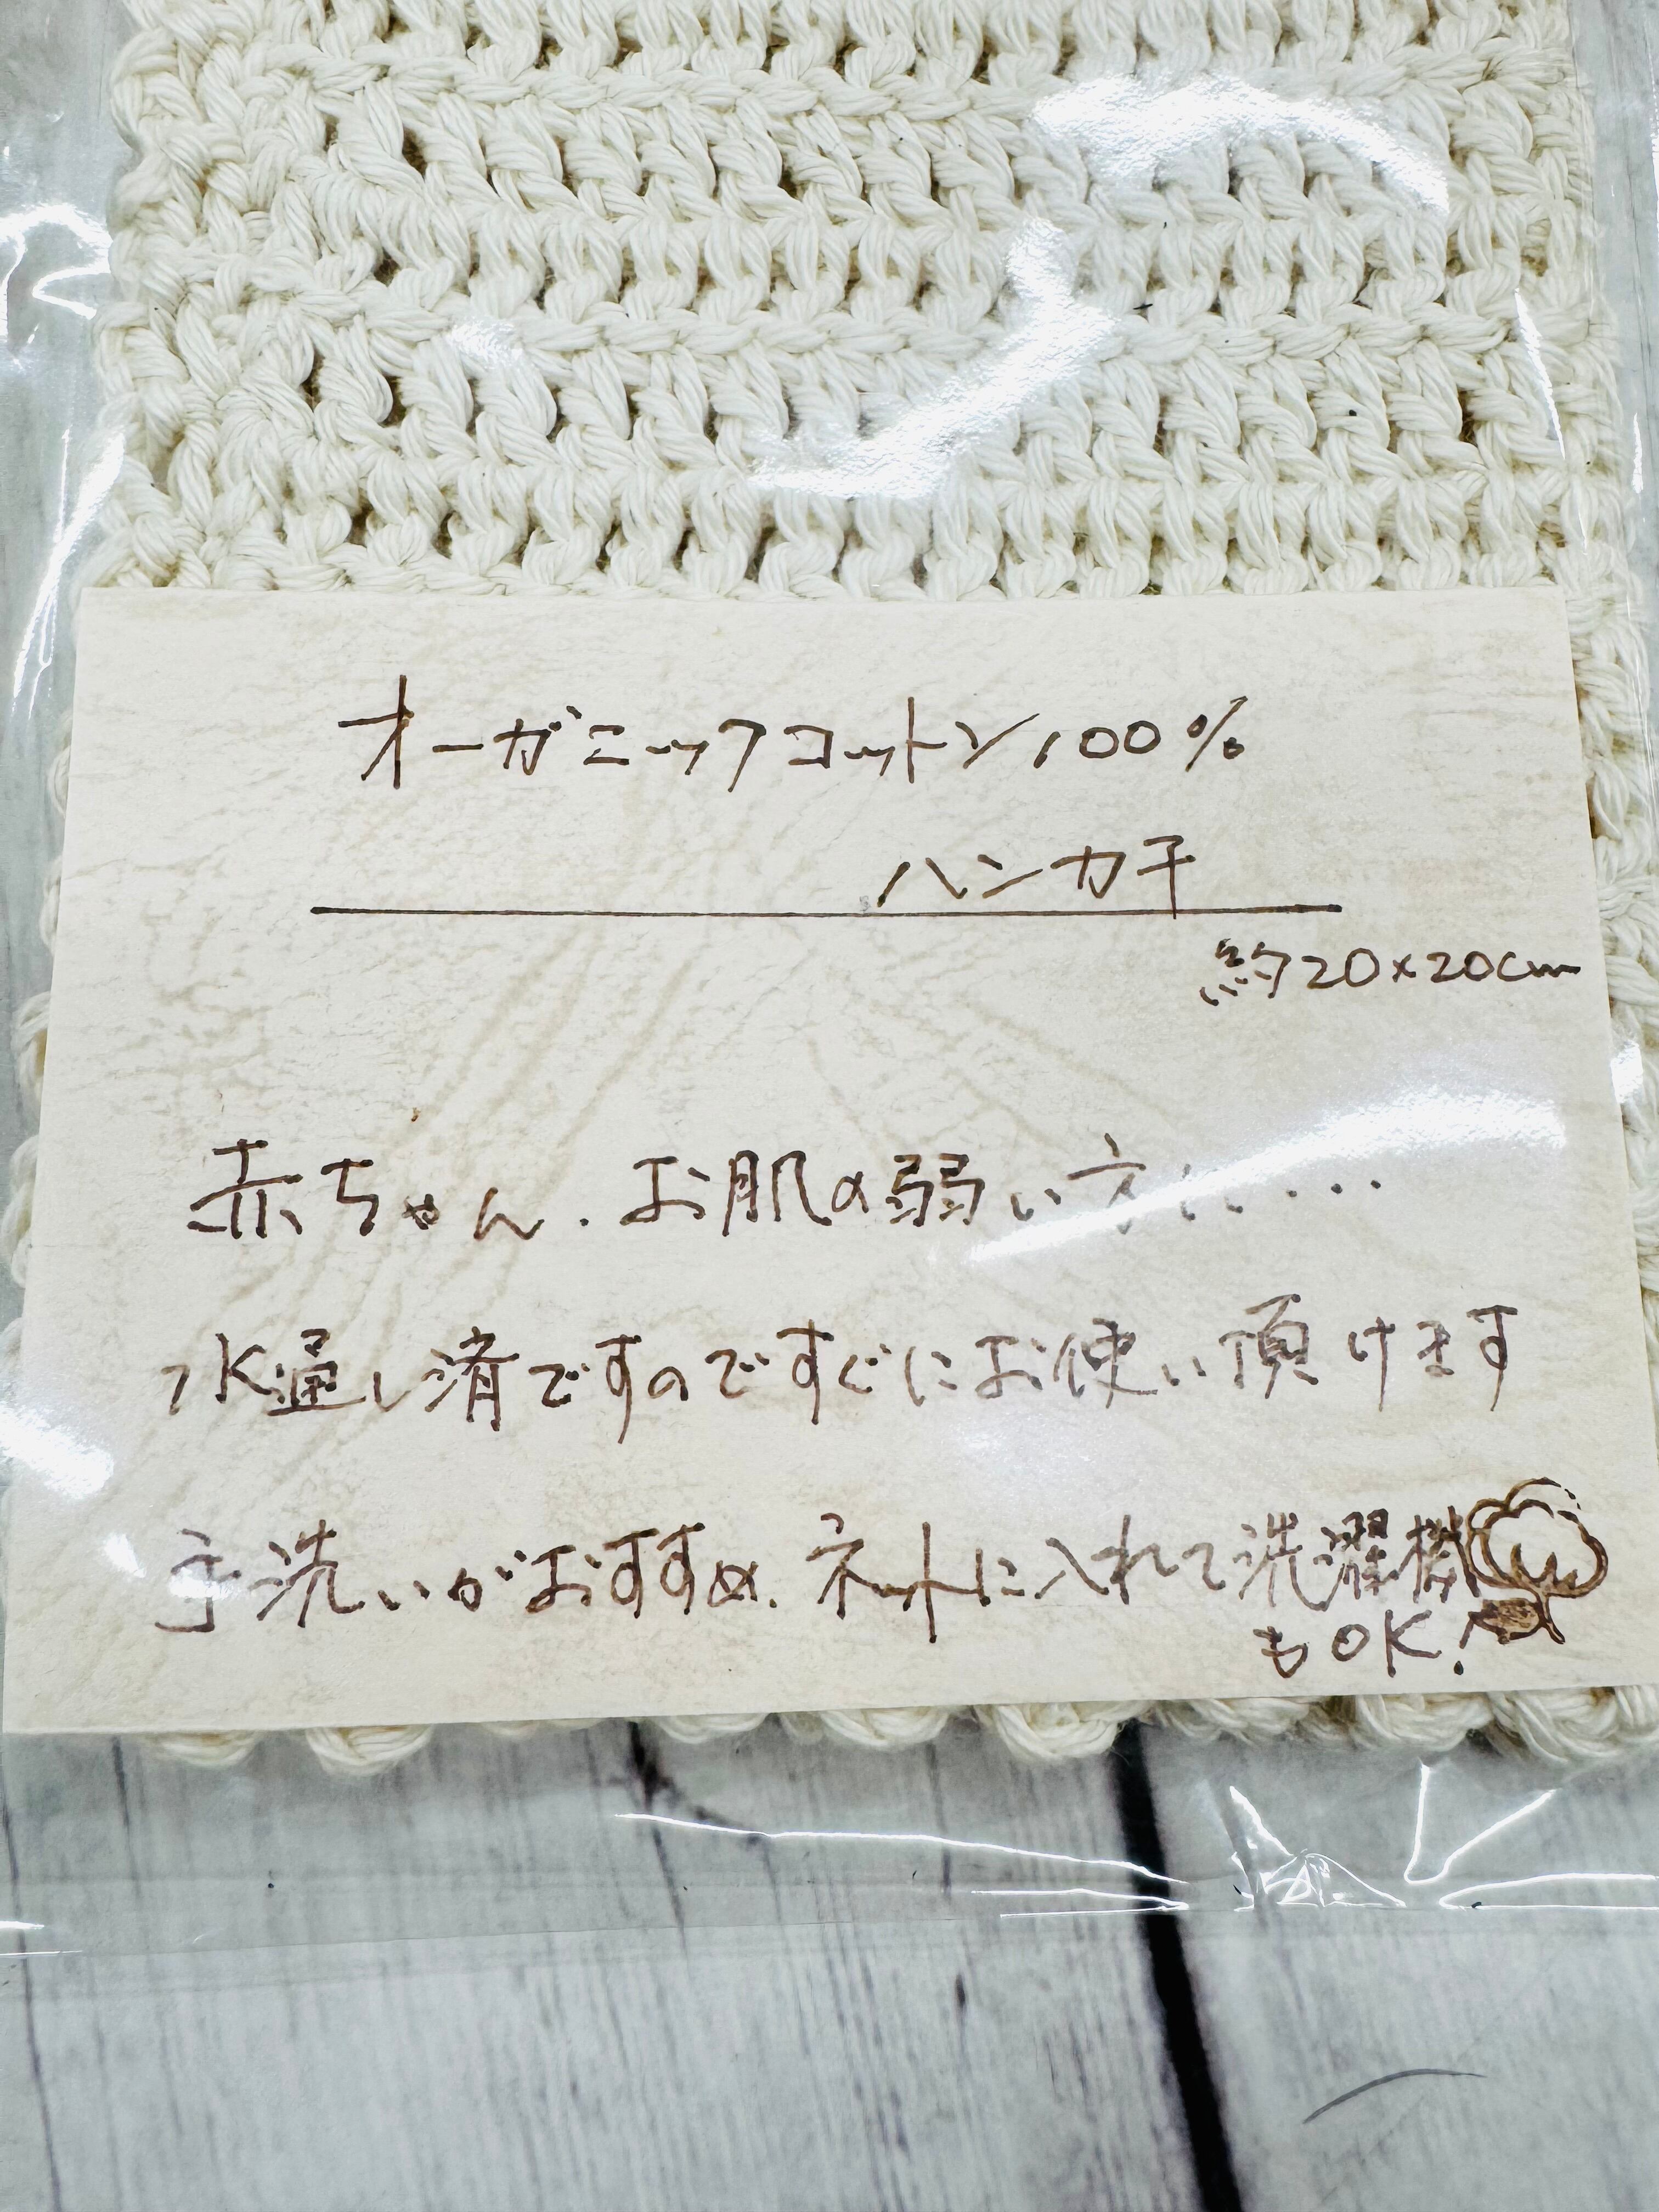 オーガニックコットン100%
ハンカチ
約20×20cm
赤ちゃん.お肌の弱い方に...
水通し済ですのですぐにお使い頂けます
手洗いがおすすめ.ネットに入れて洗濯機
もOK!